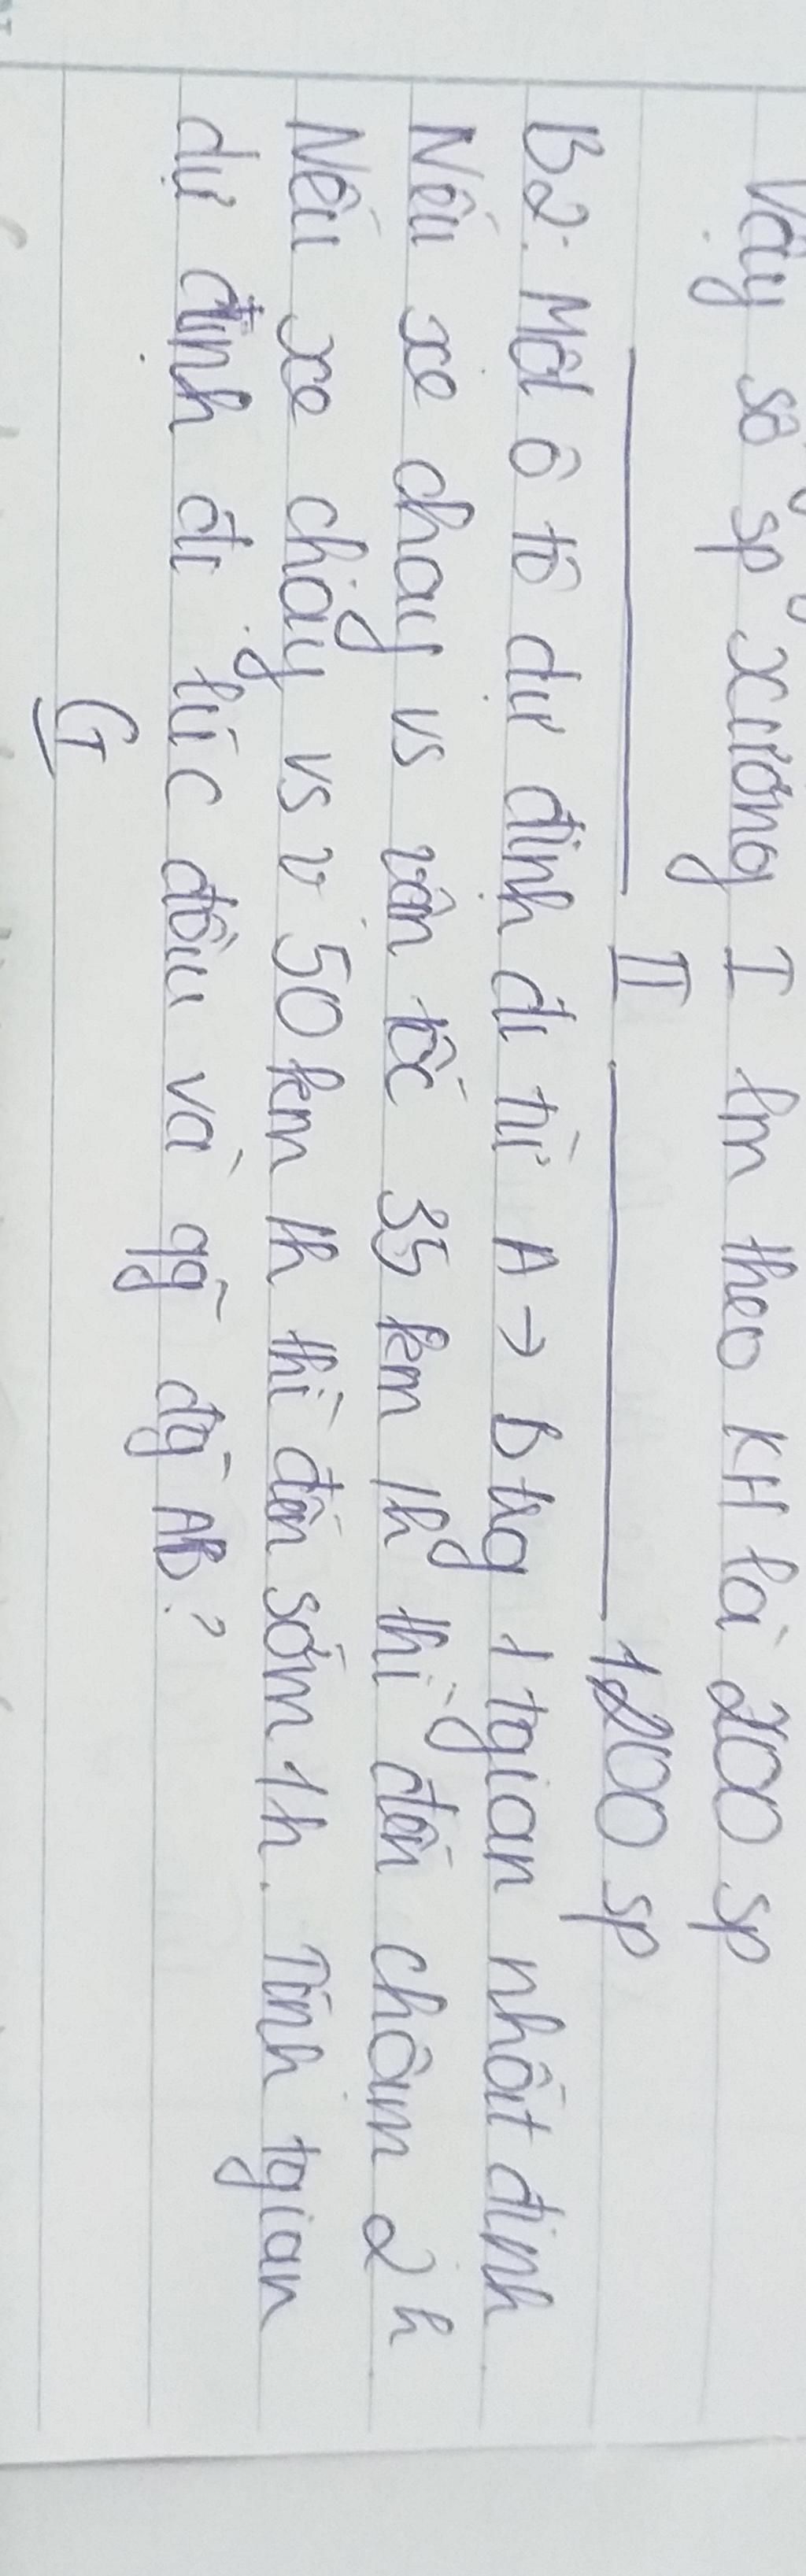 Vậy số sp xưởng I lm theo KH là 200 sp
II 1200 sp
B2: Một ô tô dự định đi từ A → b trg 1 tgian nhất định
Nếu xe chạy vs vận tốc 35 km/h thì đến chậm 2h
Nếu xe chạy vs v 50 km/h thì đến sớm 1h. Tính tgian
dự định đi lúc đầu và qg đg AB?
G